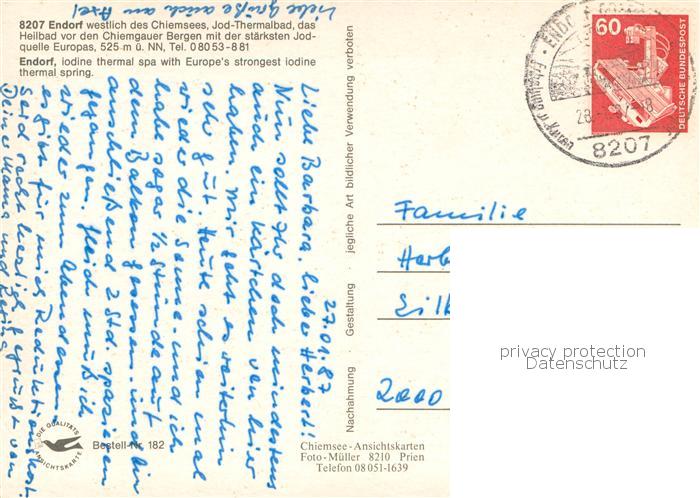 8207 Endorf westlich des Chiemsees, Jod-Thermalbad, das
Heilbad vor den Chiemgauer Bergen mit der stärksten Jod-
quelle Europas, 525 m ü. NN, Tel. 0 80 53 - 8 81
Endorf, iodine thermal spa with Europe's strongest iodine
thermal spring.
Liebe Grüße auch an Axel
27.01.87
Liebe Barbara, lieber Herbert!
Nun sollt Ihr doch mindestens
auch ein Kärtchen von hier
haben. Mir geht es weiterhin
sehr gut. Heute schien mal
wieder die Sonne und ich
habe sogar 1/2 Stunde auf
dem Balkon gesessen und bin
anschließend 2 Std. spazieren
gegangen. Gleich muß ich
wieder zum Abendessen,
es gibt für mich Reduktionskost.
Seid recht herzlich gegrüßt von
Deiner Mama und
Nachahmung · Gestaltung · jegliche Art bildlicher Verwendung verboten
60
DEUTSCHE BUNDESPOST
ENDORF
Erholung u. Kuren
8207
Familie
Herb
2000
privacy protection
Datenschutz
DIE QUALITÄTS
ANSICHTSKARTE
Bestell-Nr. 182
Chiemsee-Ansichtskarten
Foto-Müller 8210 Prien
Telefon 08 051-1639